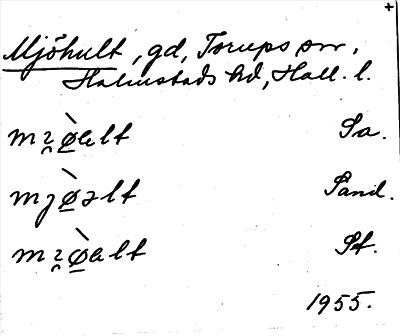 Mjöhult, gd, Torups sn,
Halmstads hd, Hall. l.
mı̯ø̱̀ɵlt Sa.
mjø̱̀əlt Sand.
mı̯ø̱̀ɵlt St.
1955.
+